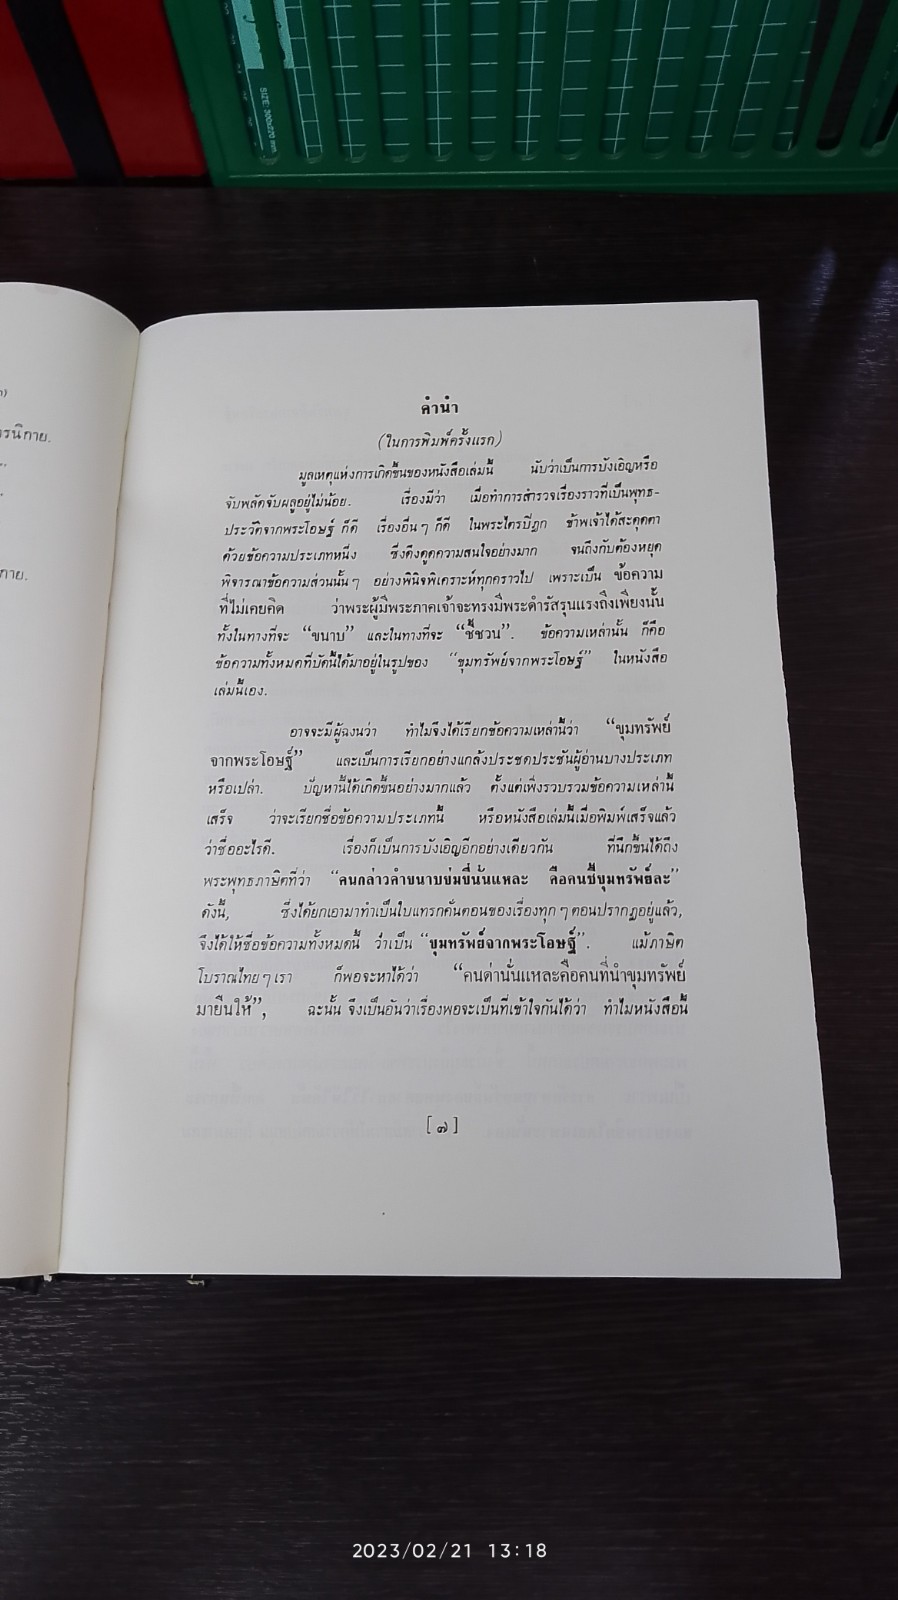 SIZE: 300x220 mm.
รนิกาย.
กาย.
คำนำ
(ในการพิมพ์ครั้งแรก)
มูลเหตุแห่งการเกิดขึ้นของหนังสือเล่มนี้ นับว่าเป็นการบังเอิญหรือ
จับพลัดจับผลูอยู่ไม่น้อย. เรื่องมีว่า เมื่อทำการสำรวจเรื่องราวที่เป็นพุทธ-
ประวัติจากพระโอษฐ์ ก็ดี เรื่องอื่นๆ ก็ดี ในพระไตรปิฎก ข้าพเจ้าได้สะดุดตา
ด้วยข้อความประเภทหนึ่ง ซึ่งดึงดูดความสนใจอย่างมาก จนถึงกับต้องหยุด
พิจารณาข้อความส่วนนั้นๆ อย่างพินิจพิเคราะห์ทุกคราวไป เพราะเป็น ข้อความ
ที่ไม่เคยคิด ว่าพระผู้มีพระภาคเจ้าจะทรงมีพระดำรัสรุนแรงถึงเพียงนั้น
ทั้งในทางที่จะ “ขนาบ” และในทางที่จะ “ชี้ชวน”. ข้อความเหล่านั้น ก็คือ
ข้อความทั้งหมดที่บัดนี้ได้มาอยู่ในรูปของ “ขุมทรัพย์จากพระโอษฐ์” ในหนังสือ
เล่มนี้เอง.
อาจจะมีผู้ฉงนว่า ทำไมจึงได้เรียกข้อความเหล่านี้ว่า “ขุมทรัพย์
จากพระโอษฐ์” และเป็นการเรียกอย่างแกล้งประชดประชันผู้อ่านบางประเภท
หรือเปล่า. ปัญหานี้ได้เกิดขึ้นอย่างมากแล้ว ตั้งแต่เพิ่งรวบรวมข้อความเหล่านี้
เสร็จ ว่าจะเรียกชื่อข้อความประเภทนี้ หรือหนังสือเล่มนี้เมื่อพิมพ์เสร็จแล้ว
ว่าชื่ออะไรดี. เรื่องก็เป็นการบังเอิญอีกอย่างเดียวกัน ที่นึกขึ้นได้ถึง
พระพุทธภาษิตที่ว่า “คนกล่าวคำขนาบข่มขี่นั่นแหละ คือคนชี้ขุมทรัพย์ละ”
ดังนี้, ซึ่งได้ยกเอามาทำเป็นใบแทรกคั่นตอนของเรื่องทุกๆ ตอนปรากฏอยู่แล้ว,
จึงได้ให้ชื่อข้อความทั้งหมดนี้ ว่าเป็น “ขุมทรัพย์จากพระโอษฐ์”. แม้ภาษิต
โบราณไทยๆ เรา ก็พอจะหาได้ว่า “คนด่านั่นแหละคือคนที่นำขุมทรัพย์
มายื่นให้”, ฉะนั้น จึงเป็นอันว่าเรื่องพอจะเป็นที่เข้าใจกันได้ว่า ทำไมหนังสือนี้
[๗]
2023/02/21 13:18